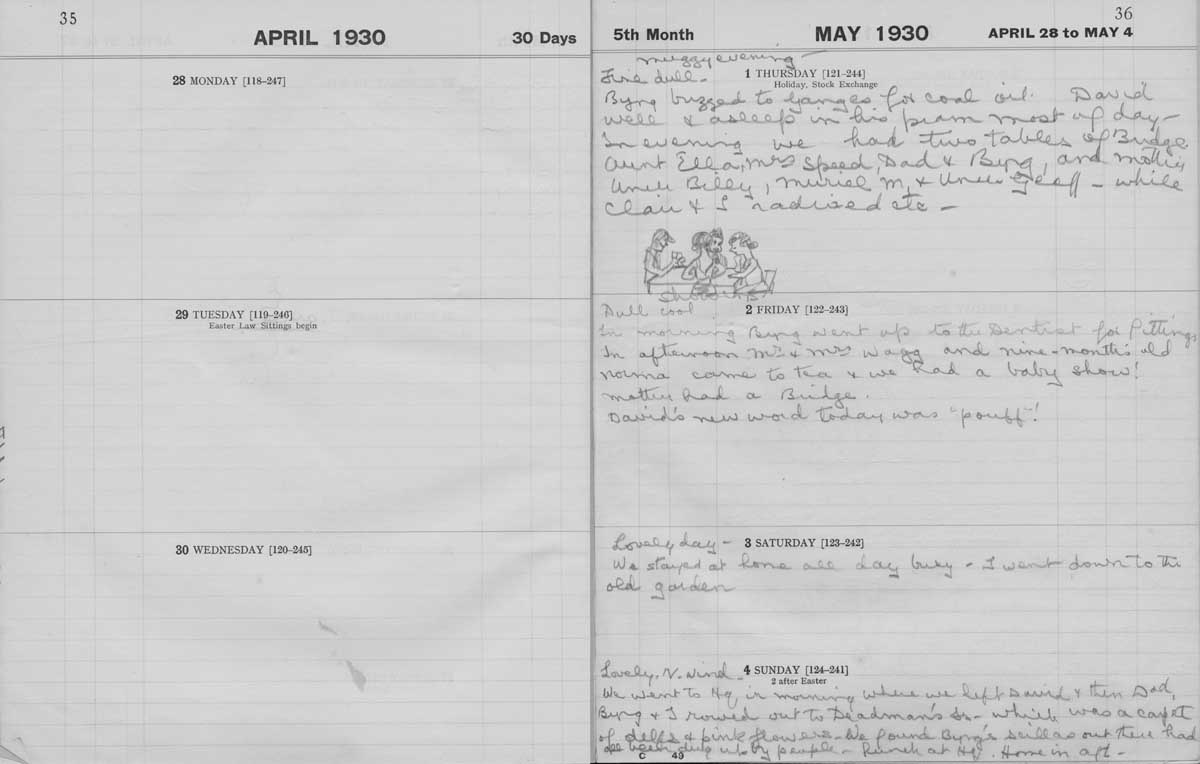 35
APRIL 1930
30 Days
28 MONDAY [118–247]
29 TUESDAY [119–246]
Easter Law Sittings begin
30 WEDNESDAY [120–245]
36
5th Month
MAY 1930
APRIL 28 to MAY 4
muggy evening –
Fine dull – 1 THURSDAY [121–244]
Holiday, Stock Exchange
Byng buzzed to Ganges for coal oil. David
well & asleep in his pram most of day –
In evening we had two tables of Bridge
Aunt Ella, Mrs Speed, Dad & Byng, and mother,
Uncle Billy, Muriel M, & Uncle Geoff – while
Clair & I radioed etc –
Dull cool 2 FRIDAY [122–243]
In morning Byng went up to the Dentist for fittings
In afternoon Mr & Mrs Wagg and nine-months old
Norma came to tea & we had a baby show!
mother had a Bridge.
David's new word today was "pouff"!
Lovely day – 3 SATURDAY [123–242]
We stayed at home all day busy – I went down to the
old garden
Lovely, N. wind – 4 SUNDAY [124–241]
2 after Easter
We went to Hq in morning where we left David & then Dad,
Byng & I rowed out to Deadman's Is – which was a carpet
of & pink flowers – We found Byng's scillas out there had
all been dug up by people – Lunch at Hq. Home in aft –
C 49